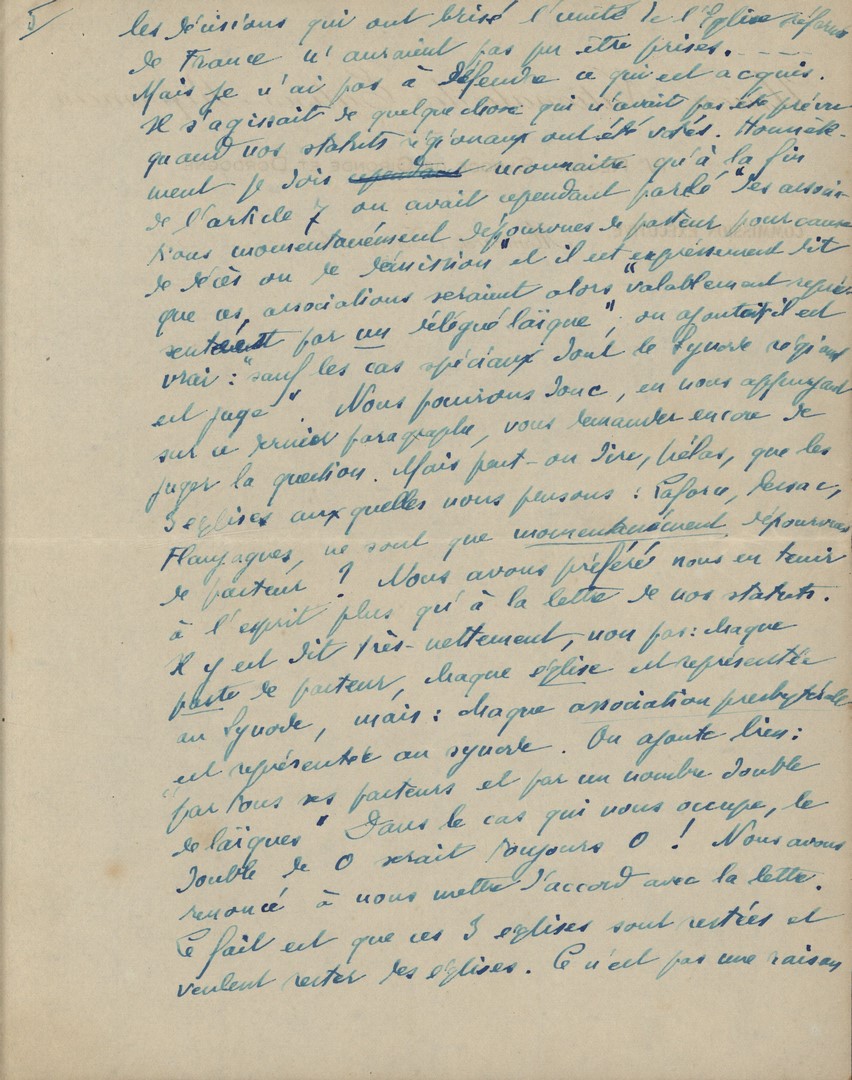 5
les décisions qui ont brisé l'unité de l'Eglise réformée
de France n'auraient pas pu être prises. - - - -
Mais je n'ai pas à défendre ce qui est acquis.
Il s'agissait de quelque chose qui n'avait pas été prévu
quand nos statuts régionaux ont été votés. Honnête-
ment je dois cependant reconnaître qu'à la fin
de l'article 7 on avait cependant parlé "des associa-
tions momentanément dépourvues de pasteur pour cause
de décès ou de démission" et il est expressément dit
que ces associations seraient alors "valablement repré-
sentées par un délégué laïque", on ajoutait il est
vrai : "sauf les cas spéciaux dont le Synode régional
est juge". Nous pourrions donc, en nous appuyant
sur ce dernier paragraphe, vous demander encore de
juger la question. Mais peut-on dire, hélas, que les
3 eglises auxquelles nous pensons : Laforce,
Flaujagues, ne sont que momentanément dépourvues
de pasteur ? Nous avons préféré nous en tenir
à l'esprit plus qu'à la lettre de nos statuts.
Il y est dit très-nettement, non pas : chaque
poste de pasteur, chaque église est représentée
au Synode, mais : chaque association presbytérale
est représentée au synode. On ajoute bien :
"par tous ses pasteurs et par un nombre double
de laïques" Dans le cas qui nous occupe, le
double de 0 serait toujours 0 ! Nous avons
renoncé à nous mettre d'accord avec la lettre.
Le fait est que ces 3 eglises sont restées et
veulent rester des eglises. Ce n'est pas une raison